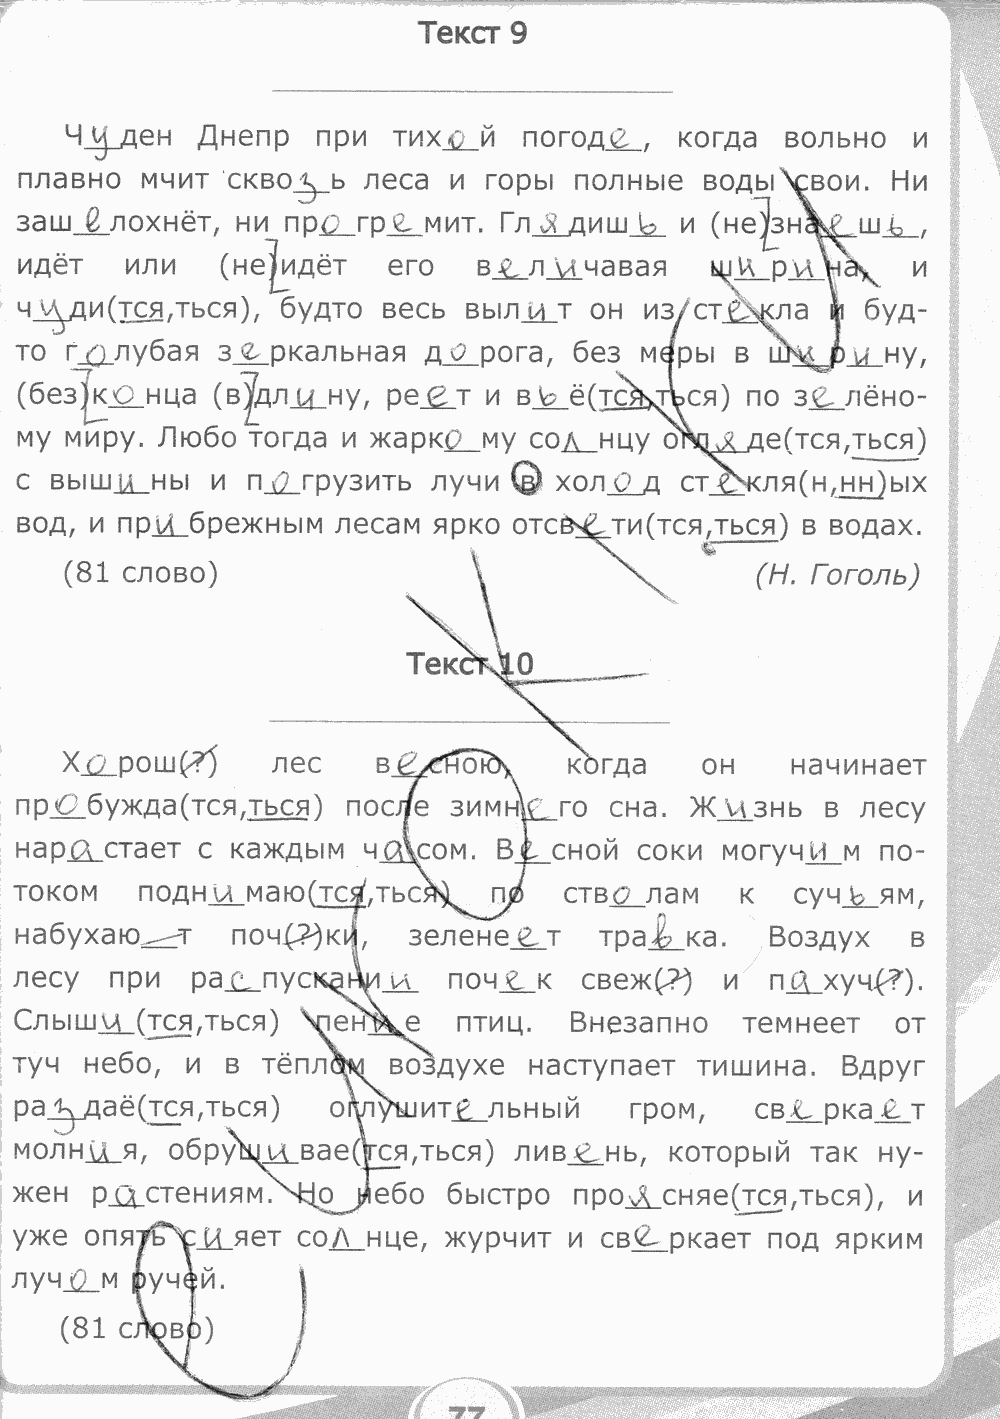 Текст 9
Чуден Днепр при тихой погоде, когда вольно и
плавно мчит сквозь леса и горы полные воды свои. Ни
зашелохнёт, ни прогремит. Глядишь и (не)знаешь,
идёт или (не)идёт его величавая ширина, и
чуди(тся,ться), будто весь вылит он из стекла и буд-
то голубая зеркальная дорога, без меры в ширину,
(без)конца (в)длину, реет и вьё(тся,ться) по зелёно-
му миру. Любо тогда и жаркому солнцу огляде(тся,ться)
с вышины и погрузить лучи в холод стекля(н,нн)ых
вод, и прибрежным лесам ярко отсвети(тся,ться) в водах.
(81 слово)
(Н. Гоголь)
Текст 10
Хорош(?) лес весною, когда он начинает
пробужда(тся,ться) после зимнего сна. Жизнь в лесу
нарастает с каждым часом. Весной соки могучим по-
током поднимаю(тся,ться) по стволам к сучьям,
набухаю_т поч(?)ки, зеленеет травка. Воздух в
лесу при распускании почек свеж(?) и пахуч(?).
Слыши(тся,ться) пение птиц. Внезапно темнеет от
туч небо, и в тёплом воздухе наступает тишина. Вдруг
раздаё(тся,ться) оглушительный гром, сверкает
молния, обрушивае(тся,ться) ливень, который так ну-
жен растениям. Но небо быстро проясняе(тся,ться), и
уже опять сияет солнце, журчит и сверкает под ярким
лучом ручей.
(81 слово)
77